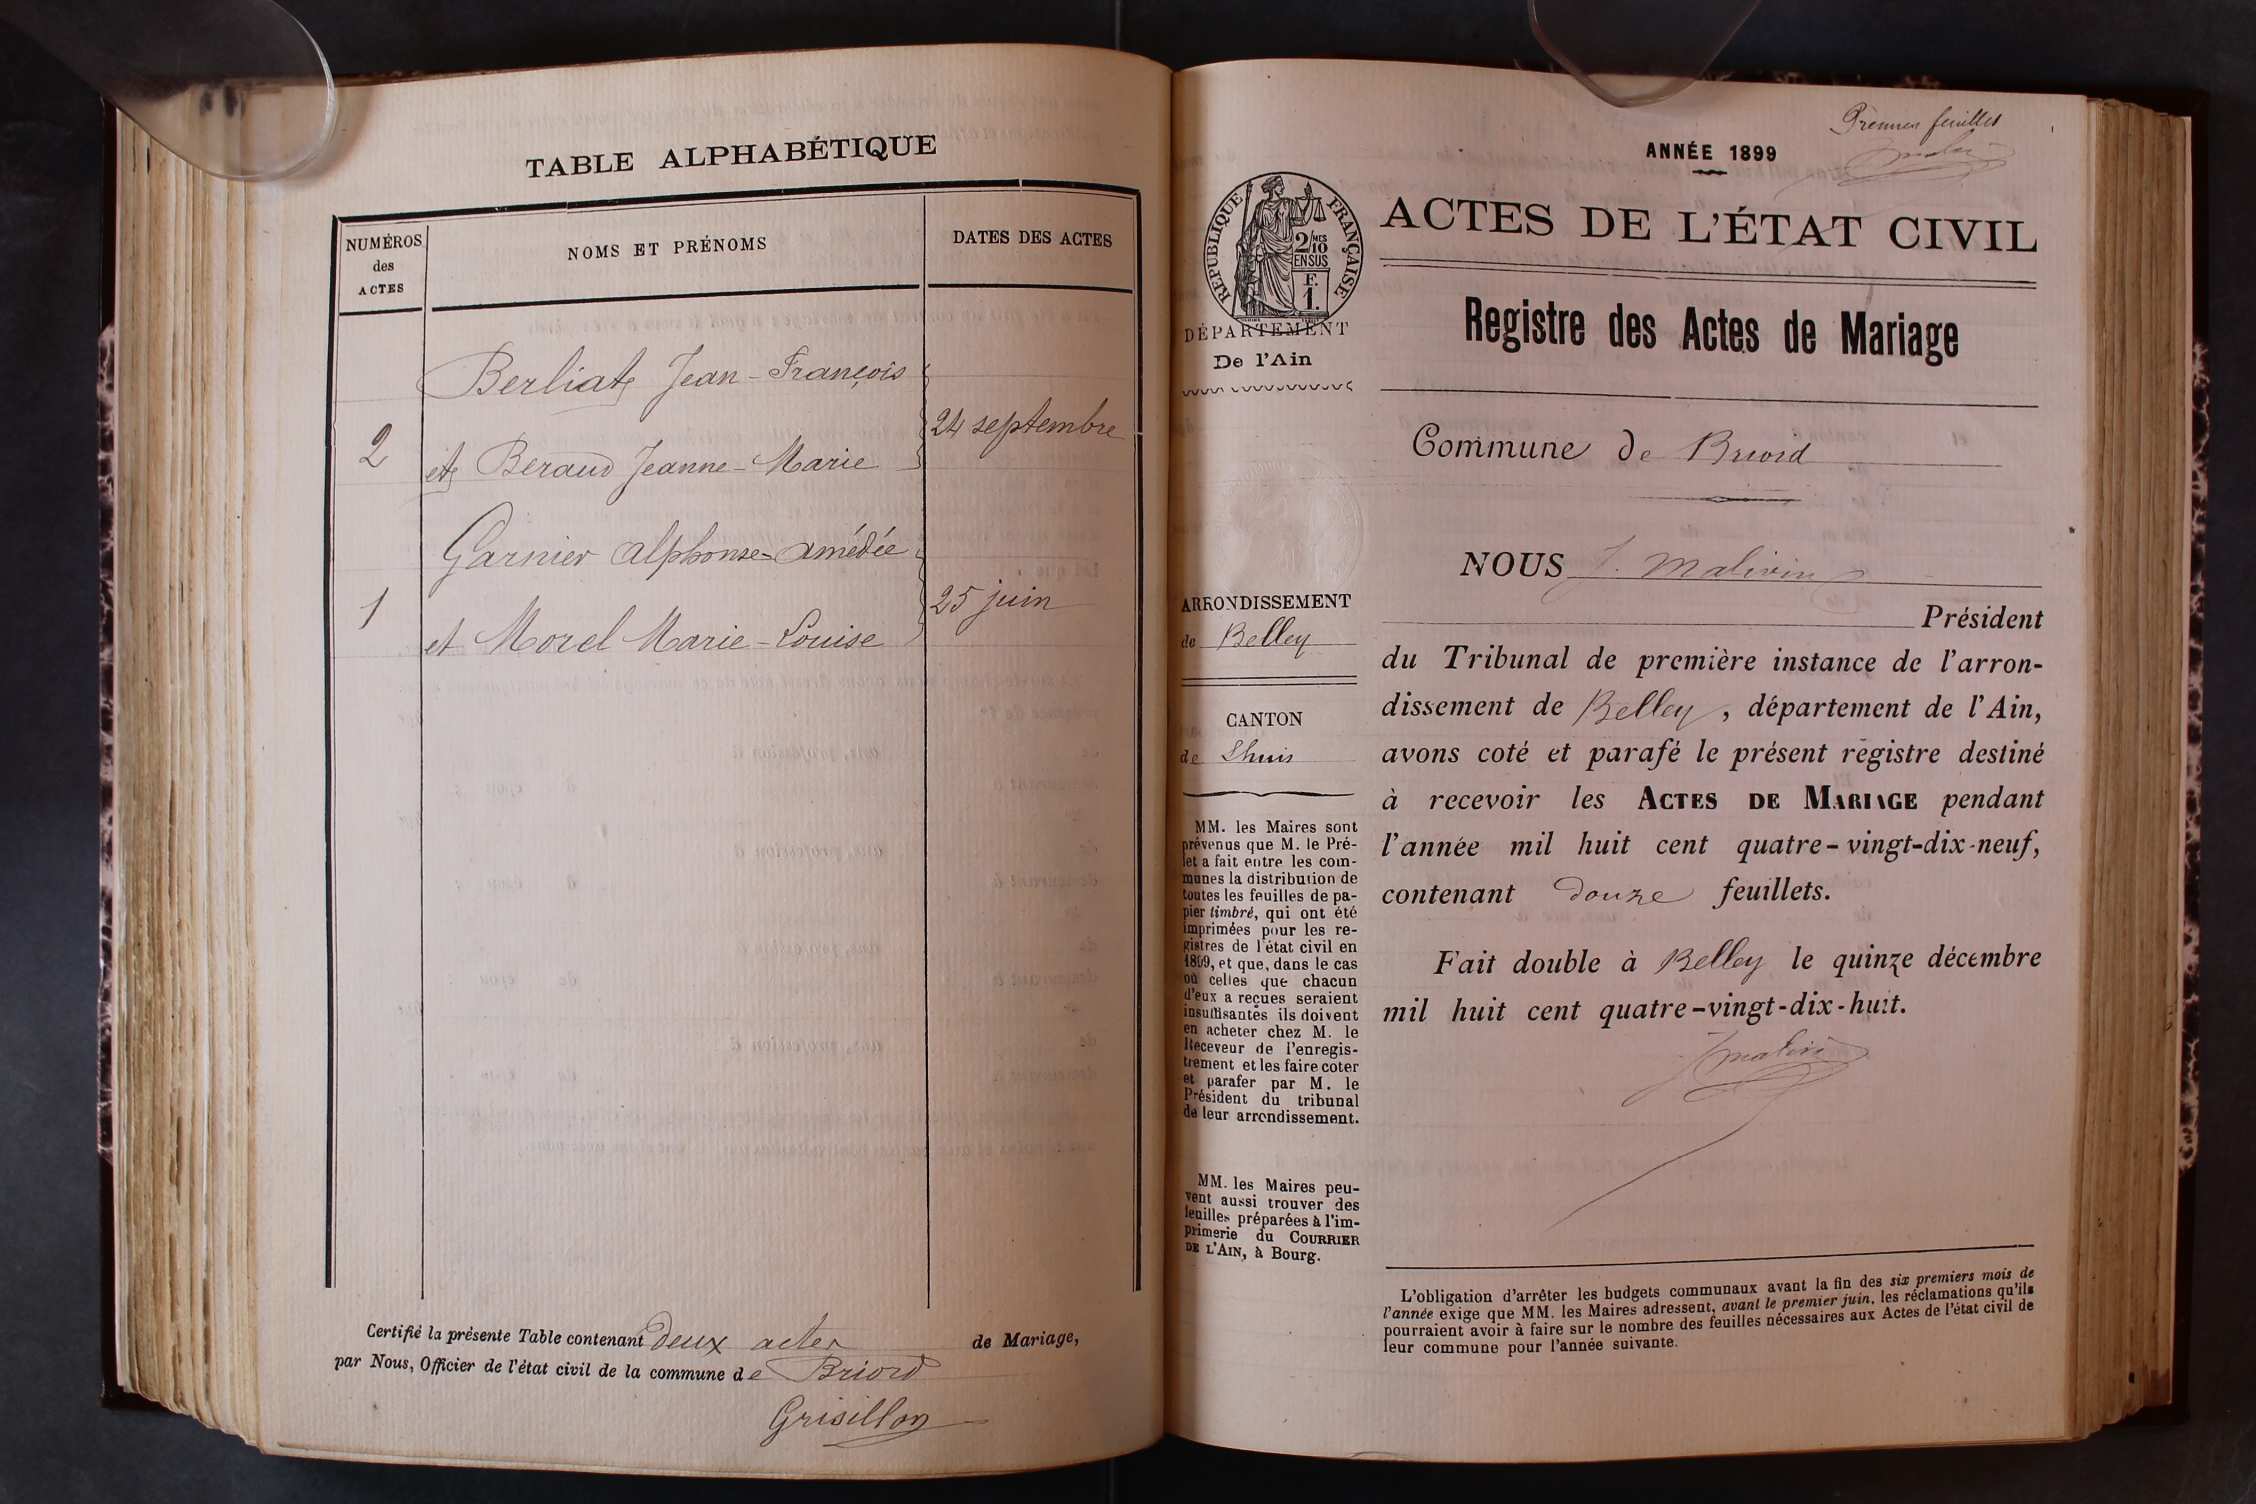 TABLE ALPHABÉTIQUE
NUMÉROS
des
ACTES
NOMS ET PRÉNOMS
DATES DES ACTES
Berliat Jean-François
2
et Beraud Jeanne-Marie
24 septembre
Garnier Alphonse-Amédée
1
et Morel Marie-Louise
25 juin
Certifié la présente Table contenant deux actes de Mariage,
par Nous, Officier de l'état civil de la commune de Briord
Grisillon
Premier feuillet
ANNÉE 1899
ACTES DE L'ÉTAT CIVIL
RÉPUBLIQUE FRANÇAISE
2/10 MES
EN SUS
F.
1.
DÉPARTEMENT
De l'Ain
Registre des Actes de Mariage
Commune de Briord
ARRONDISSEMENT
de Belley
CANTON
de Lhuis
MM. les Maires sont
prévenus que M. le Pré-
fet a fait entre les com-
munes la distribution de
toutes les feuilles de pa-
pier timbré, qui ont été
imprimées pour les re-
gistres de l'état civil en
1899, et que, dans le cas
où celles que chacun
d'eux a reçues seraient
insuffisantes ils doivent
en acheter chez M. le
Receveur de l'enregis-
trement et les faire coter
et parafer par M. le
Président du tribunal
de leur arrondissement.
MM. les Maires peu-
vent aussi trouver des
feuilles préparées à l'im-
primerie du COURRIER
DE L'AIN, à Bourg.
NOUS J. Malivin
Président
du Tribunal de première instance de l'arron-
dissement de Belley, département de l'Ain,
avons coté et parafé le présent registre destiné
à recevoir les ACTES DE MARIAGE pendant
l'année mil huit cent quatre-vingt-dix-neuf,
contenant douze feuillets.
Fait double à Belley le quinze décembre
mil huit cent quatre-vingt-dix-huit.
L'obligation d'arrêter les budgets communaux avant la fin des six premiers mois de
l'année exige que MM. les Maires adressent, avant le premier juin, les réclamations qu'ils
pourraient avoir à faire sur le nombre des feuilles nécessaires aux Actes de l'état civil de
leur commune pour l'année suivante.